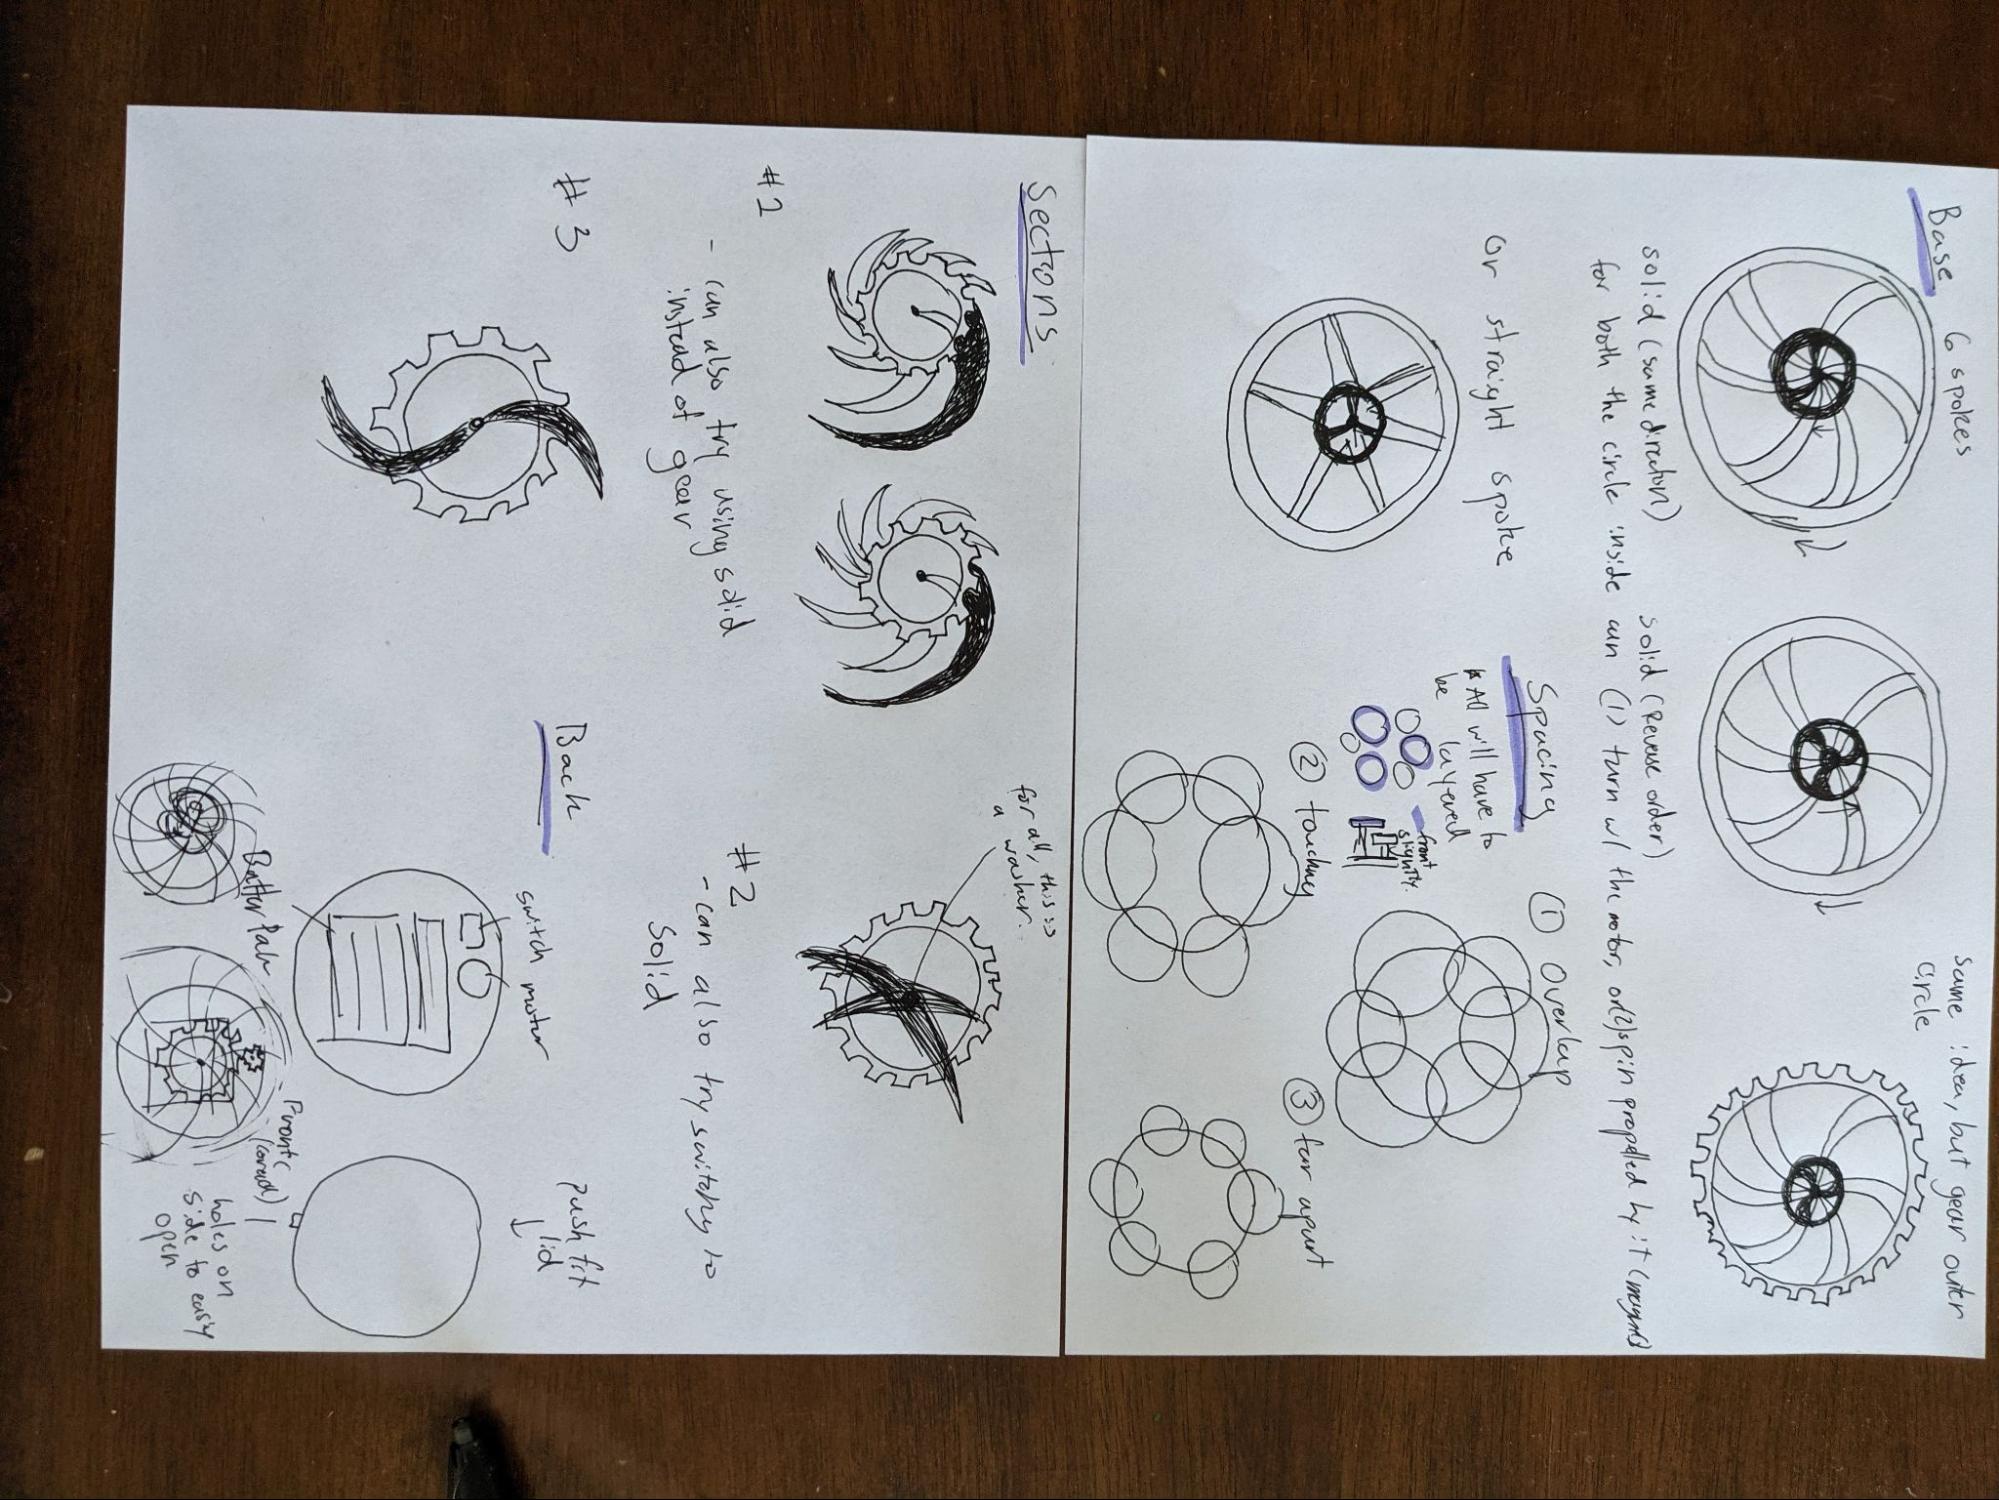 Base
6 spokes
same idea, but gear outer
circle
solid (same direction)
solid (reverse order)
for both the circle inside can (1) turn w/ the motor, or (2) spin propelled by it (magnets)
Or straight spoke
Spacing
* All will have to
be layered
front
slightly.
① Overlap
② touching
③ far apart
Sections
#1
- can also try using solid
instead of gear
for all, this is
a washer.
#2
- can also try switching to
solid
#3
Back
switch motor
Batter Pack
push fit
↓ lid
holes on
side to easily
open